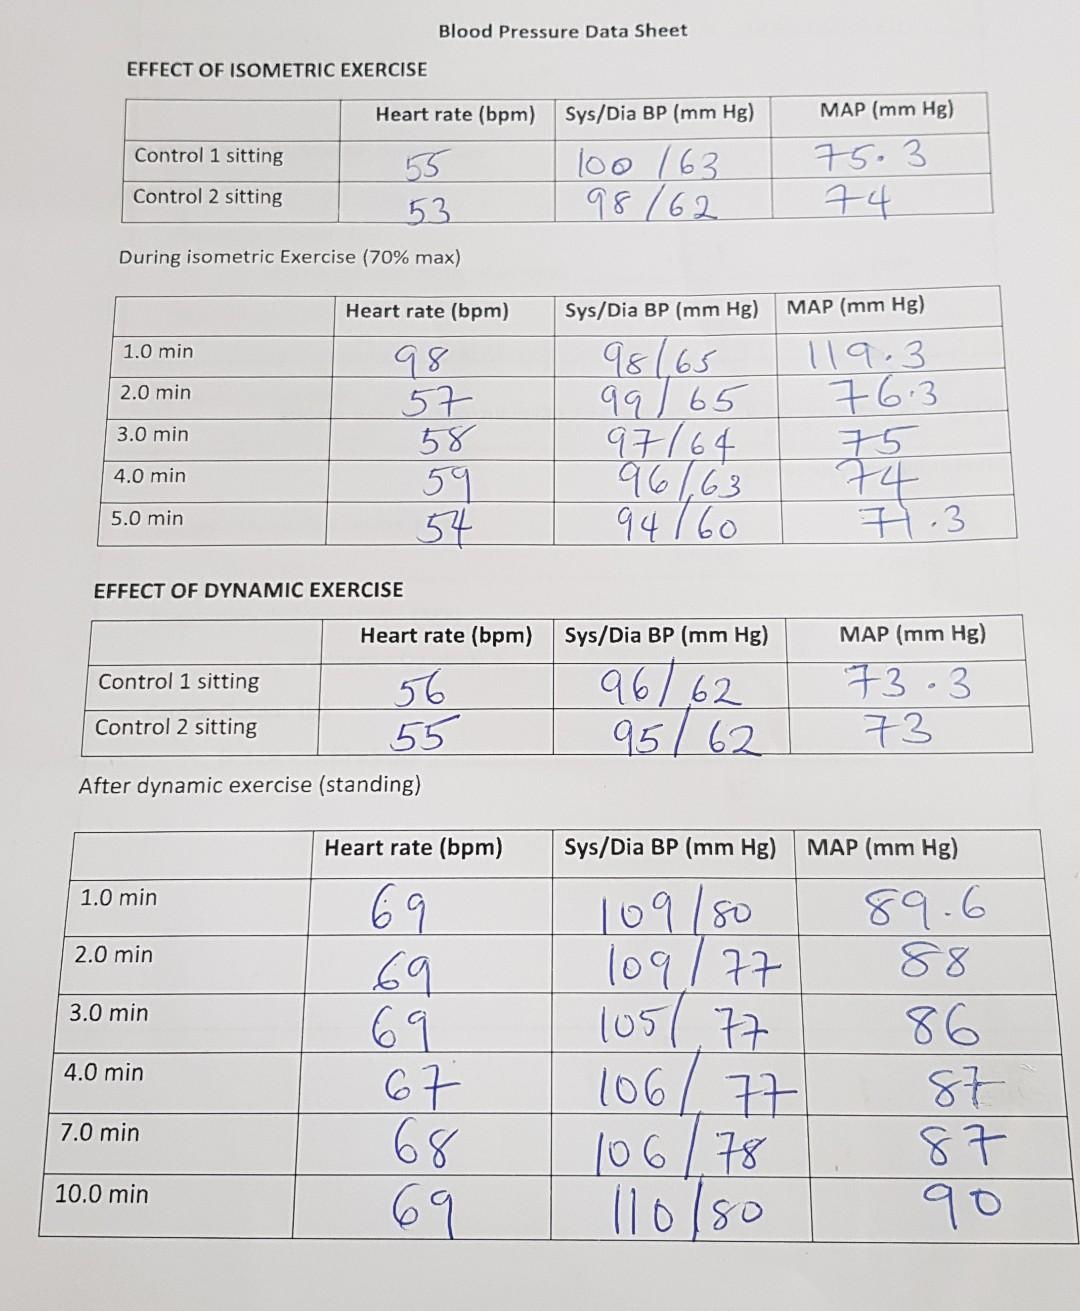 Blood Pressure Data Sheet
EFFECT OF ISOMETRIC EXERCISE
Heart rate (bpm) Sys/Dia BP (mm Hg) MAP (mm Hg)
Control 1 sitting 55 100 / 63 75.3
Control 2 sitting 53 98 / 62 74
During isometric Exercise (70% max)
Heart rate (bpm) Sys/Dia BP (mm Hg) MAP (mm Hg)
1.0 min 98 98/65 119.3
2.0 min 57 99/ 65 76.3
3.0 min 58 97/64 75
4.0 min 59 96/63 74
5.0 min 54 94/60 71.3
EFFECT OF DYNAMIC EXERCISE
Heart rate (bpm) Sys/Dia BP (mm Hg) MAP (mm Hg)
Control 1 sitting 56 96/ 62 73.3
Control 2 sitting 55 95/ 62 73
After dynamic exercise (standing)
Heart rate (bpm) Sys/Dia BP (mm Hg) MAP (mm Hg)
1.0 min 69 109/80 89.6
2.0 min 69 109/ 77 88
3.0 min 69 105/ 77 86
4.0 min 67 106/ 77 87
7.0 min 68 106/ 78 87
10.0 min 69 110/80 90